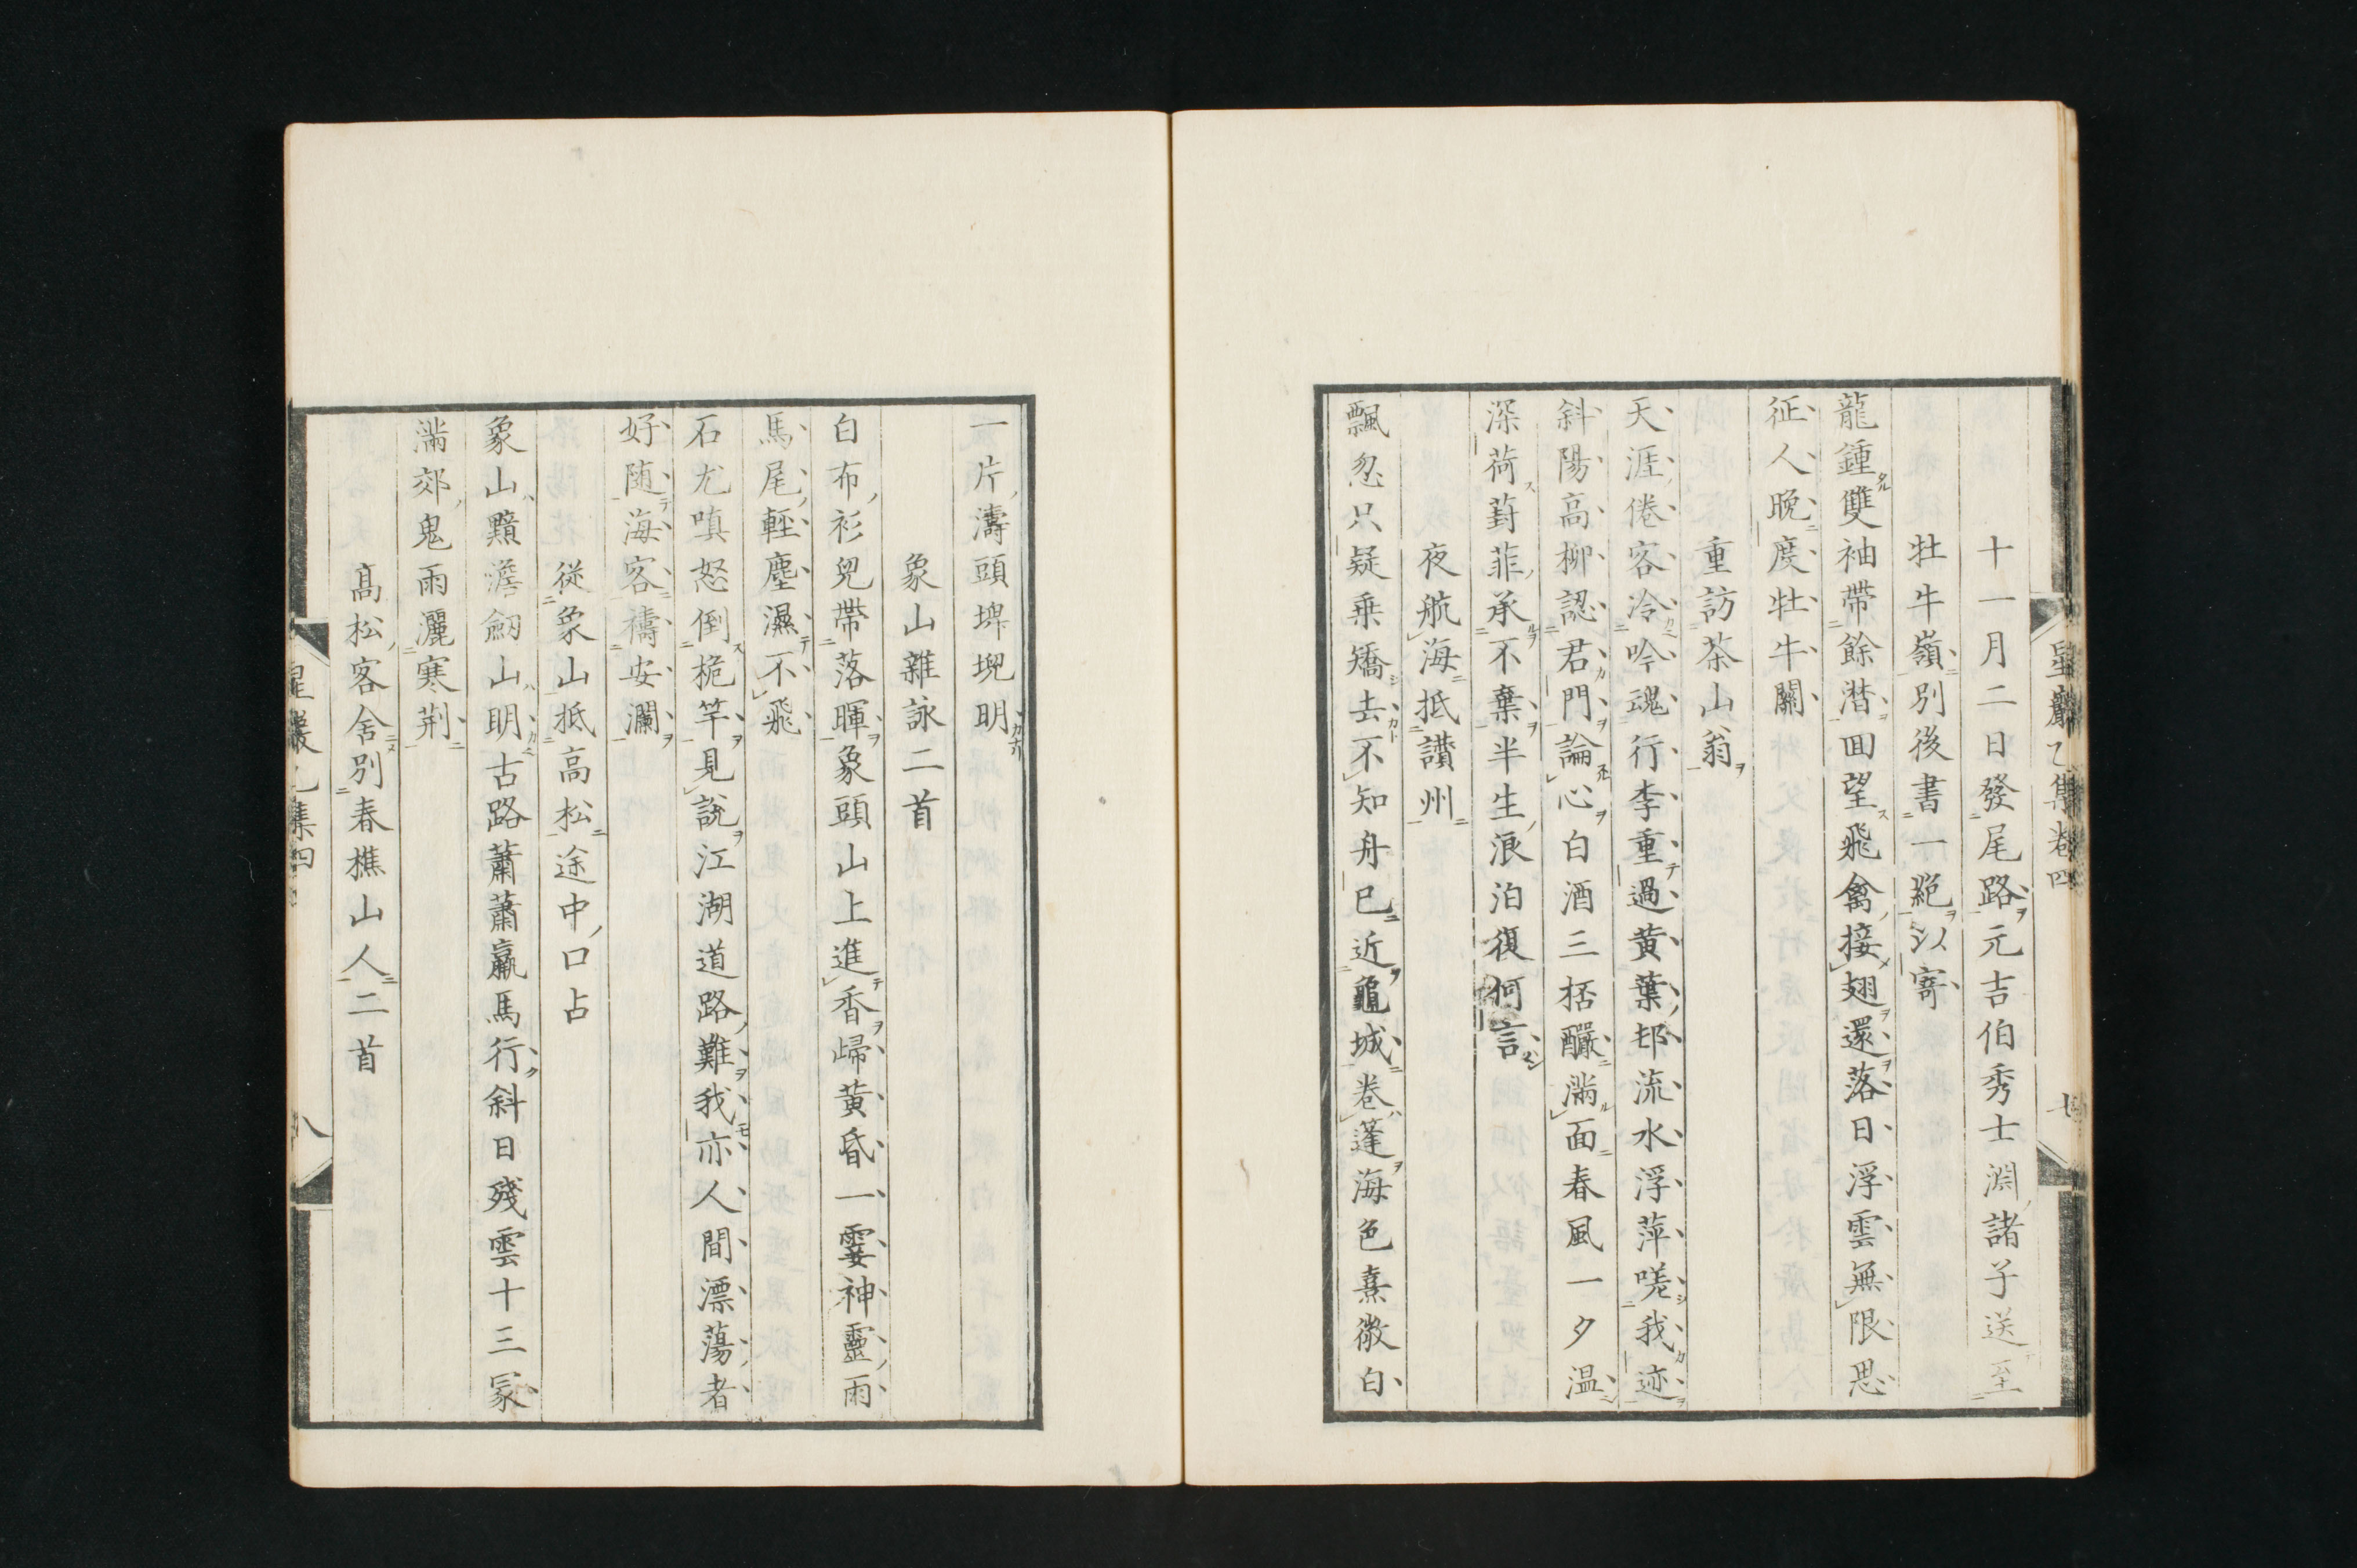 星巖乙集卷四
七
十一月二日發尾路元吉伯秀士淵諸子送至
牡牛嶺別後書一絶以寄
龍鍾雙袖帶餘潸回望飛禽接翅還落日浮雲無限思
征人晩度牡牛關
重訪茶山翁
天涯倦客冷吟魂行李重過黃葉邨流水浮萍嗟我迹
斜陽高柳認君門論心白酒三桮釅滿面春風一夕温
深荷葑菲承不棄半生浪泊復何言
夜航海抵讃州
飄忽只疑乗矯去不知舟已近龜城卷蓬海色熹微白
一片濤頭埤堄明
象山雜詠二首
白布衫兒帶落暉象頭山上進香歸黃昏一霎神靈雨
馬尾輕塵濕不飛
石尤嗔怒倒桅竿見說江湖道路難我亦人間漂蕩者
好随海客禱安瀾
從象山抵高松途中口占
象山黯澹劒山明古路蕭蕭羸馬行斜日殘雲十三冡
滿郊鬼雨灑寒荆
高松客舍別春樵山人二首
星巖乙集四
八